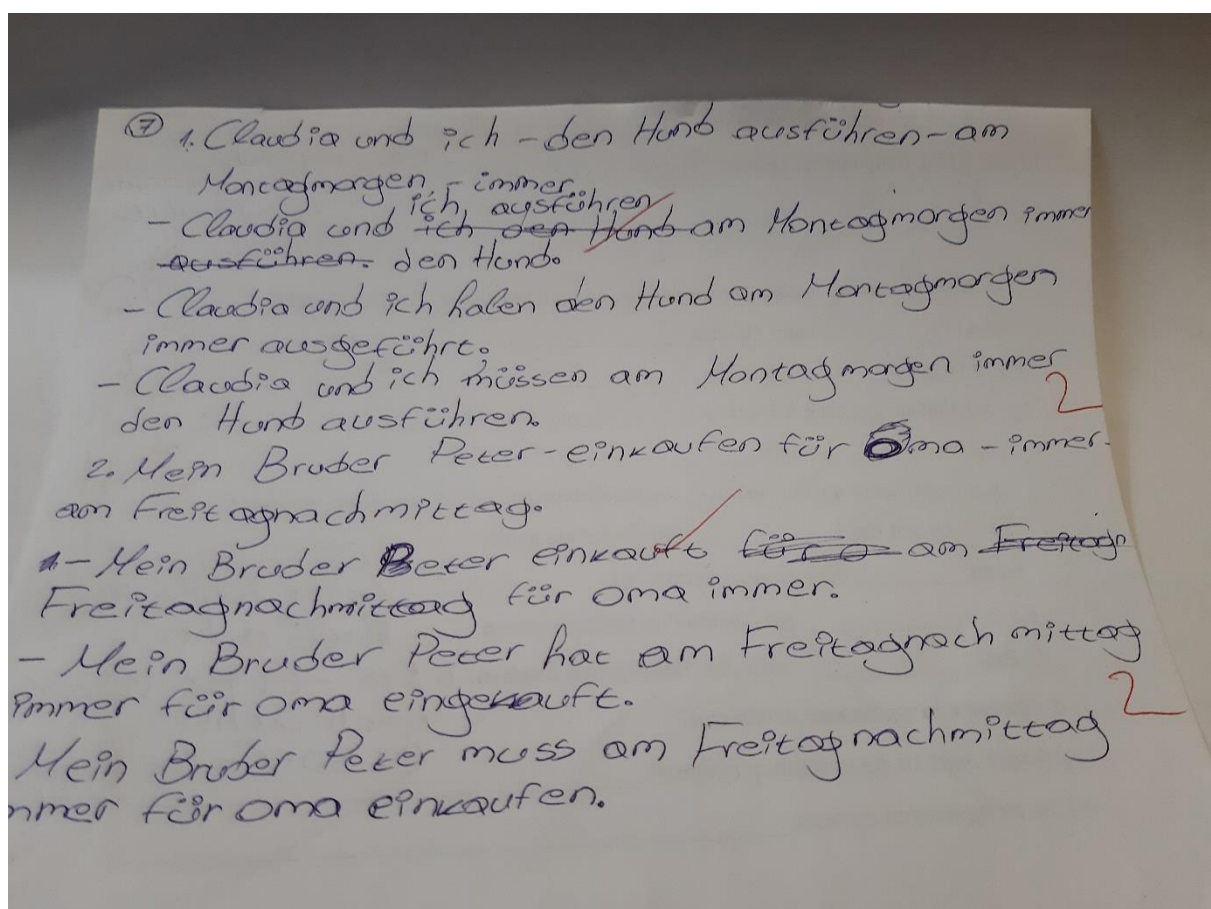 ⑦ 1. Claudia und ich - den Hund ausführen - am
Montagmorgen, - immer
ich ausführen
- Claudia und ich den Hund am Montagmorgen immer
ausführen. den Hund.
- Claudia und ich haben den Hund am Montagmorgen
immer ausgeführt.
- Claudia und ich müssen am Montagmorgen immer
den Hund ausführen.
2
2. Mein Bruder Peter - einkaufen für Oma - immer -
am Freitagnachmittag.
- Mein Bruder Peter einkauft für o am Freitagn
Freitagnachmittag für oma immer.
- Mein Bruder Peter hat am Freitagnachmittag
immer für oma eingekauft.
2
Mein Bruder Peter muss am Freitagnachmittag
mmer für oma einkaufen.